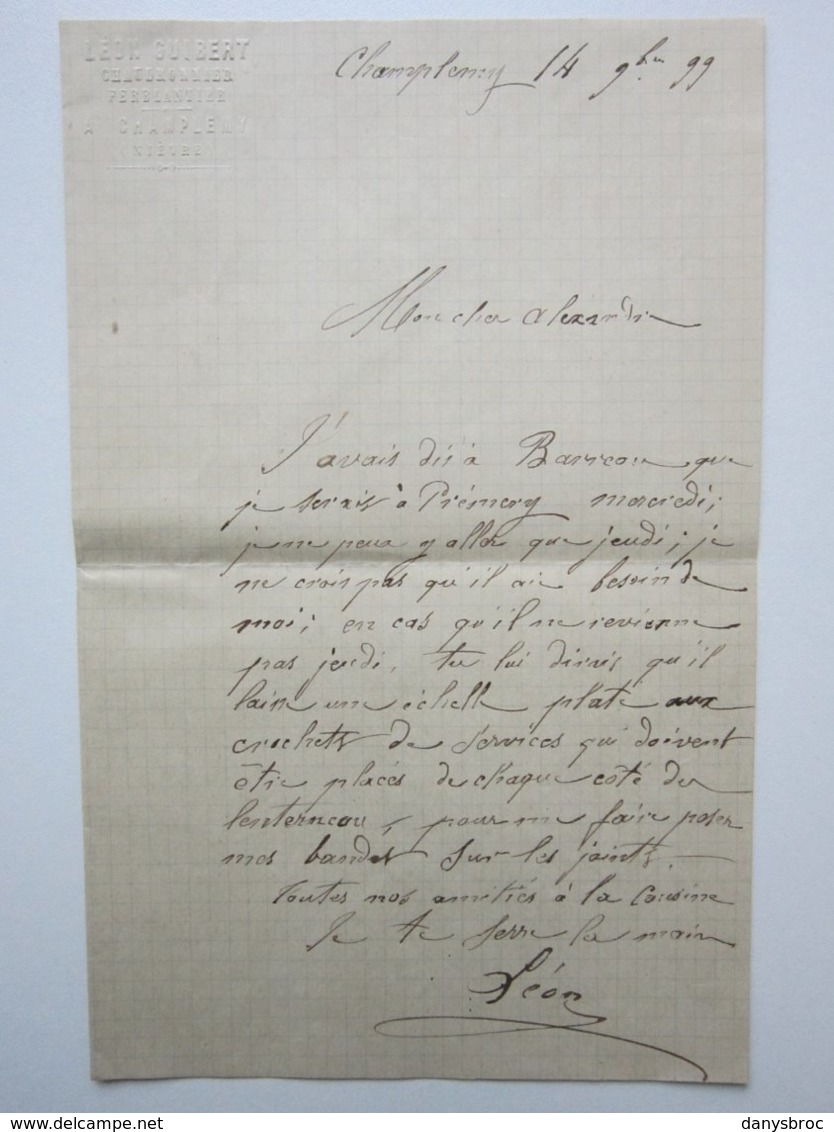 LÉON GUIBERT
CHAUDRONNIER
FERBLANTIER
A CHAMPLEMY
(NIÈVRE)
Champlemy 14 9bre 99
Mon cher Alexandre
J'avais dit à Barreau que
je serais à Prémery mercredi;
je ne peux y aller que jeudi; je
ne crois pas qu'il ait besoin de
moi; en cas qu'il ne revienne
pas jeudi, tu lui dirais qu'il
laisse une échelle plate aux
crochets de services qui doivent
être placés de chaque côté du
lenterneau, pour me faire poser
mes bandes sur les joints.
Toutes nos amitiés à la Cousine
Je te serre la main
Léon
Delcampe.net
danysbroc